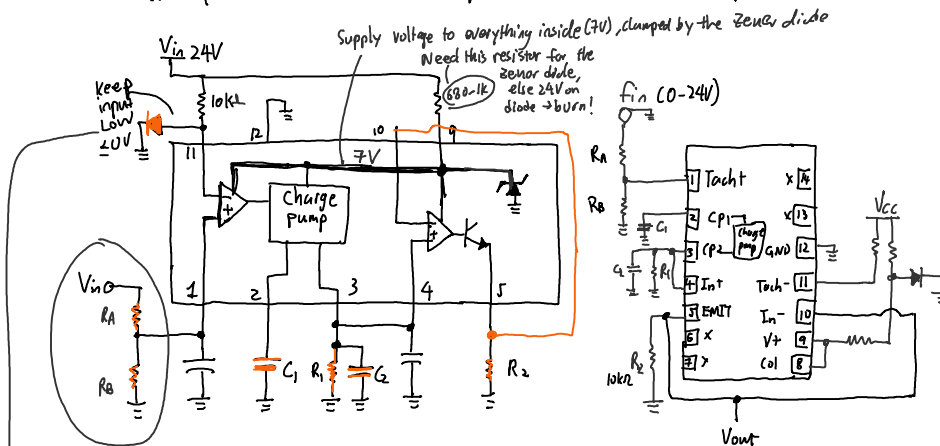 Supply voltage to everything inside (7V), clamped by the zener diode
Need this resistor for the
zenor diode,
else 24V on
diode → burn!
Vin 24V
Keep
input
Low
20V
10kΩ
680-1k
12
10
9
11
7V
Charge
pump
Vin
RA
RB
1
2
3
4
5
C1
R1
C2
R2
fin (0-24V)
RA
RB
C1
C2
R1
R2
10kΩ
1 Tach+
2 CP1
3 CP2
4 In+
5 EMIT
6 X
7 X
Charge
pump
X 14
X 13
GND 12
Tach- 11
In- 10
V+ 9
Col 8
Vcc
Vout